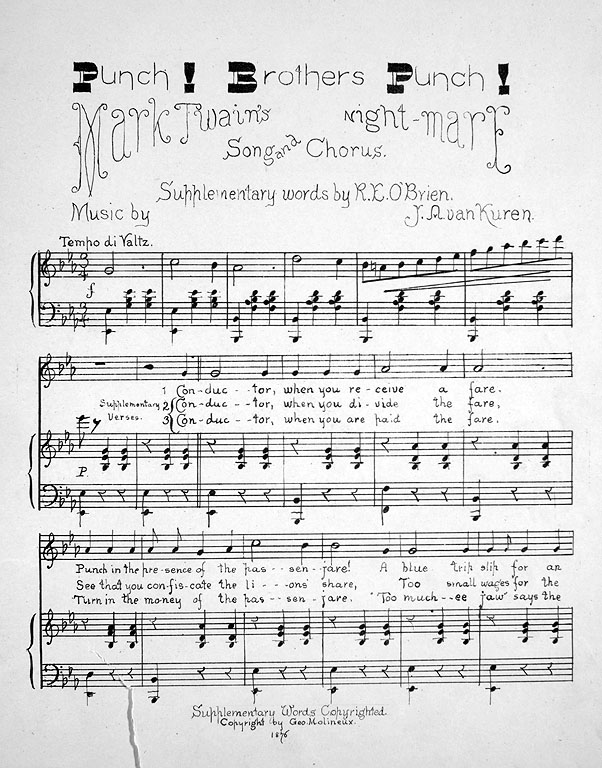 Punch! Brothers Punch!
Mark Twain's Night-mare
Song and Chorus.
Supplementary words by R.E. O'Brien.
Music by J.A. van Kuren.
Tempo di Valtz.
f
1 Con-duc--tor, when you re-ceive a fare.
Supplementary Verses. 2 Con-duc--tor, when you di-vide the fare,
3 Con-duc--tor, when you are paid the fare.
P.
Punch in the pre-sence of the pas--sen-jare! A blue trip slip for an
See that you con-fis-cate the li---ons' share, Too small wages for the
Turn in the money of the pas--sen-jare. "Too much-ee jaw" says the
Supplementary Words Copyrighted.
Copyright by Geo. Molineux.
1876